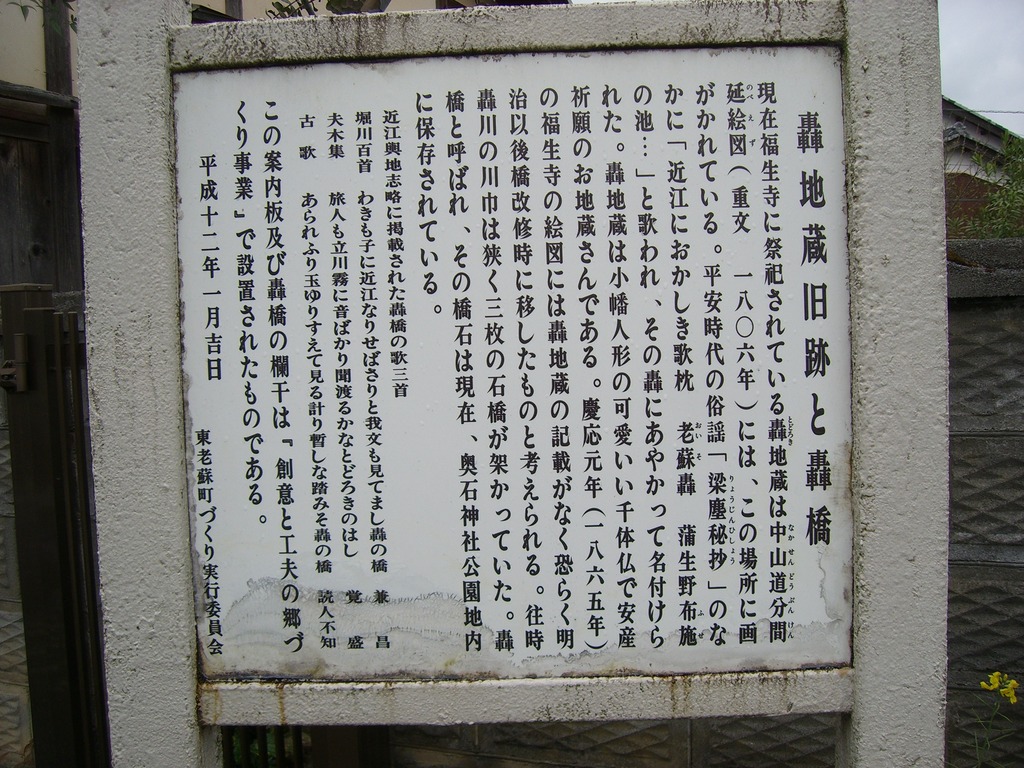 轟地蔵旧跡と轟橋
現在福生寺に祭祀されている轟地蔵は中山道分間
延絵図（重文　一八〇六年）には、この場所に画
がかれている。平安時代の俗謡「梁塵秘抄」のな
かに「近江におかしき歌枕　老蘇轟　蒲生野布施
の池…」と歌われ、その轟にあやかって名付けら
れた。轟地蔵は小幡人形の可愛いい千体仏で安産
祈願のお地蔵さんである。慶応元年（一八六五年）
の福生寺の絵図には轟地蔵の記載がなく恐らく明
治以後橋改修時に移したものと考えられる。往時
轟川の川巾は狭く三枚の石橋が架かっていた。轟
橋と呼ばれ、その橋石は現在、奥石神社公園地内
に保存されている。
近江輿地志略に掲載された轟橋の歌三首
堀川百首　わきも子に近江なりせばさりと我文も見てまし轟の橋　兼昌
夫木集　旅人も立川霧に音ばかり聞渡るかなとどろきのはし　覚盛
古歌　あられふり玉ゆりすえて見る計り暫しな踏みそ轟の橋　読人不知
この案内板及び轟橋の欄干は『創意と工夫の郷づ
くり事業』で設置されたものである。
平成十二年一月吉日
東老蘇町づくり実行委員会